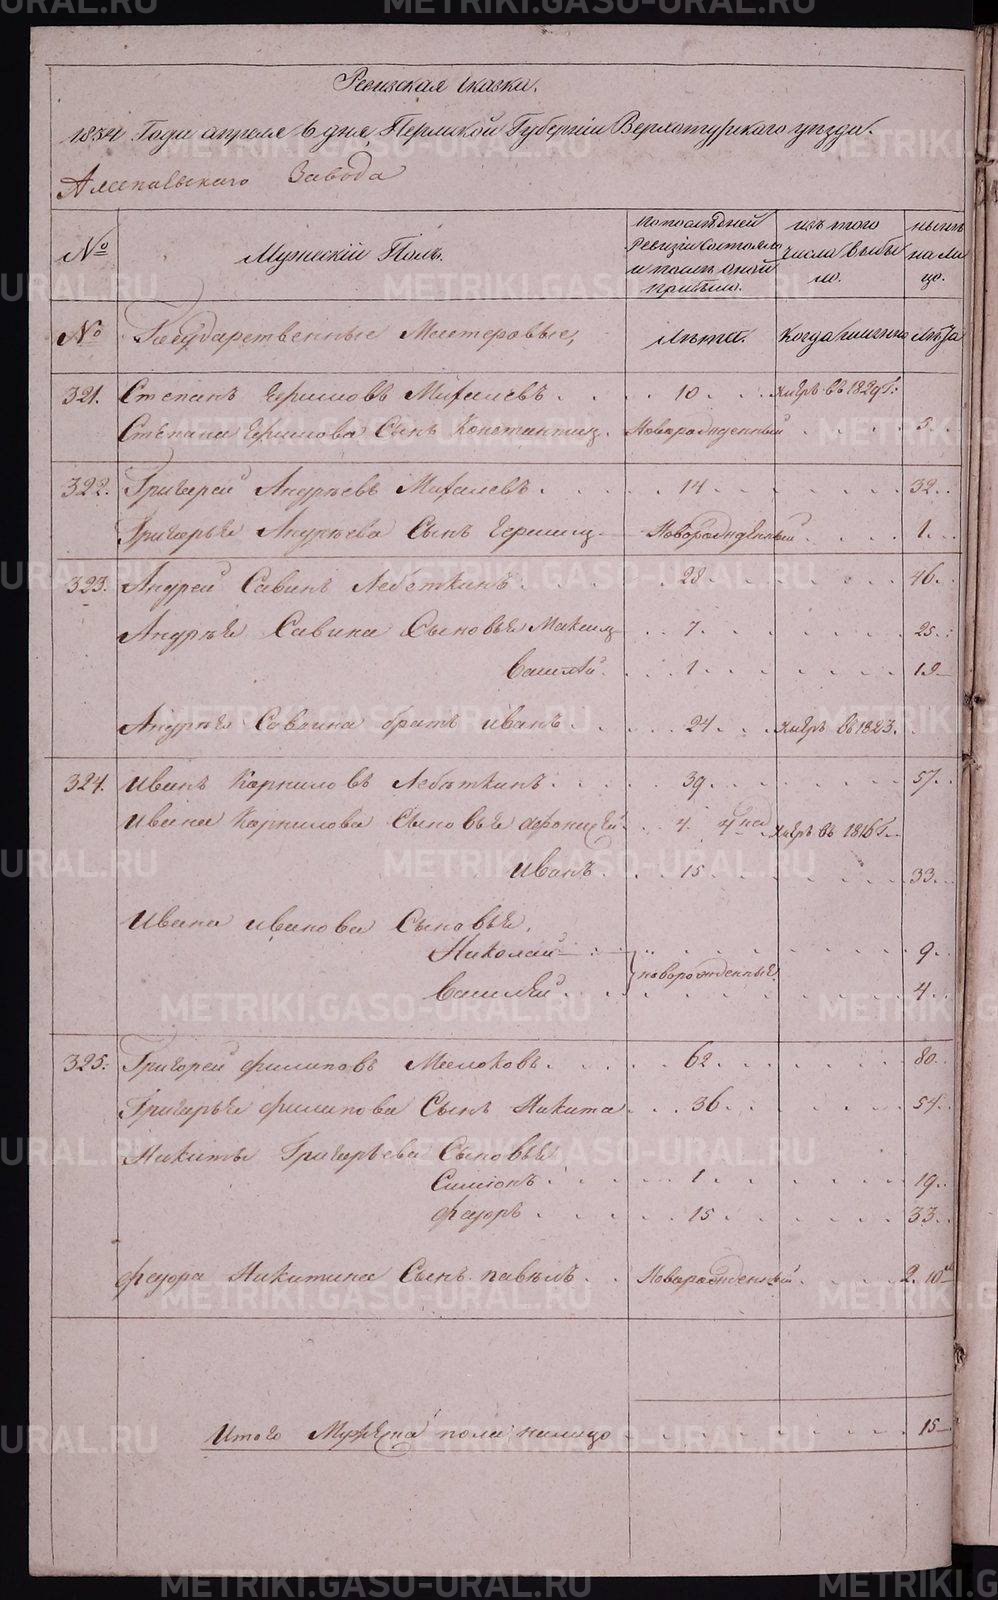 Ревизская сказка.
1834 Года апреля 6 дня, Пермской Губернiи Верхотурскаго уезда.
Алапаевскаго Завода
№
Мужескiй Полъ.
по последней Ревизiи состояло и после оной прибыло.
изъ того числа выбыло.
ныне на лицо.
№ Государственные Мастеровые, лета. Когда именно лета
321. Степанъ Ефимовъ Михалевъ. 10. умеръ въ 1829 г.
Степана Ефимова Сынъ Константинъ. Новорожденный 5.
322. Григорей Андреевъ Михалевъ. 14. 32.
Григорья Андреева Сынъ Ефимъ Новорожденный 1.
323. Андрей Савинъ Лебеткинъ. 28. 46.
Андрея Савина Сыновья Максимъ 7. 25.
Василей. 1. 19
Андрея Савина братъ иванъ. 24. умеръ въ 1823.
324. иванъ Корниловъ Лебеткинъ. 39. 57.
ивана Корнилова Сыновья 4. умеръ въ 1816 г.
иванъ. 15. 33.
ивана иванова Сыновья,
Николай 9.
новорожденные
Василей 4.
325. Григорей филиповъ 62. 80.
Григорья филипова Сынъ Никита 36. 54.
Никиты Григорьева Сыновья
Симiонъ 1. 19.
федоръ 15. 33.
федора Никитина Сынъ павелъ. Новорожденный 2. 10
итого Мужеска пола налицо 15
METRIKI.GASO-URAL.RU